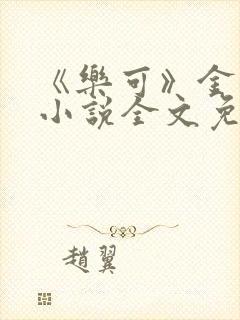 《樂可》金
小說全文免
趙翼